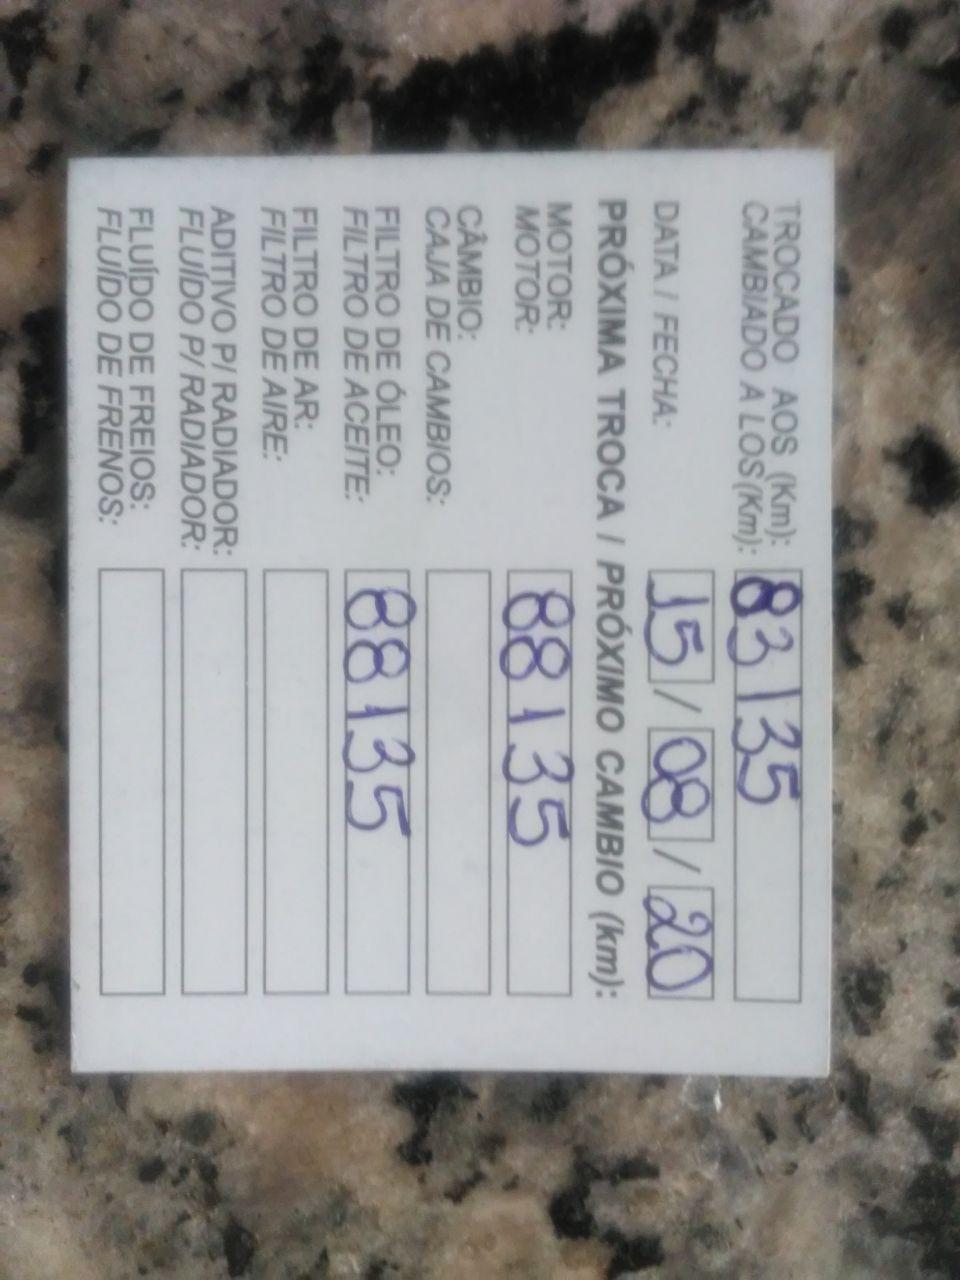 TROCADO AOS (Km): 83135
CAMBIADO A LOS (Km):
DATA / FECHA: 15 / 08 / 20
PRÓXIMA TROCA / PRÓXIMO CAMBIO (km):
MOTOR: 88135
MOTOR:
CÂMBIO:
CAJA DE CAMBIOS:
FILTRO DE ÓLEO: 88135
FILTRO DE ACEITE:
FILTRO DE AR:
FILTRO DE AIRE:
ADITIVO P/ RADIADOR:
FLUÍDO P/ RADIADOR:
FLUÍDO DE FREIOS:
FLUÍDO DE FRENOS: